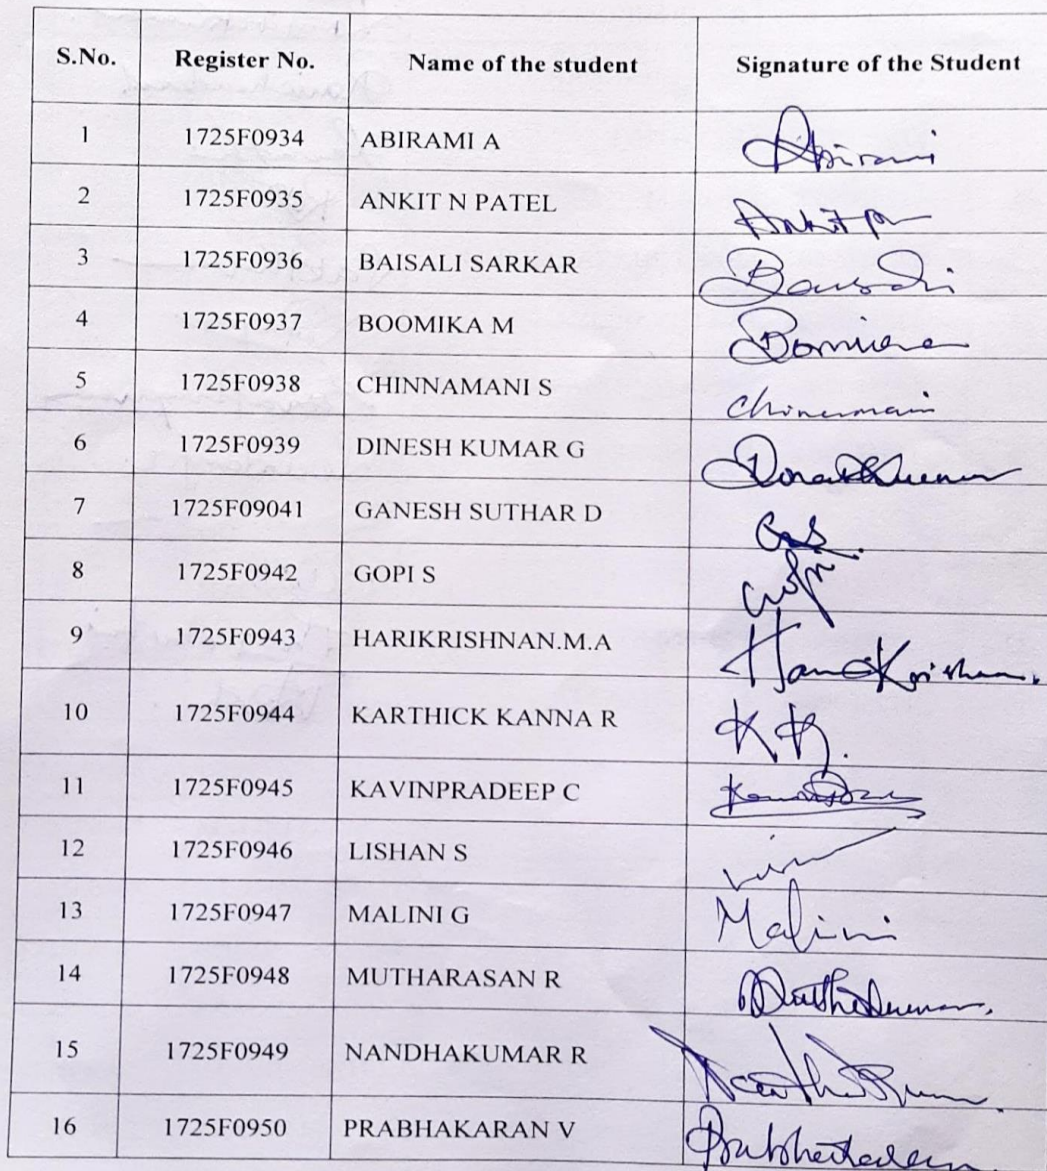 S.No. Register No. Name of the student Signature of the Student
1 1725F0934 ABIRAMI A Abirami
2 1725F0935 ANKIT N PATEL
3 1725F0936 BAISALI SARKAR
4 1725F0937 BOOMIKA M
5 1725F0938 CHINNAMANI S
6 1725F0939 DINESH KUMAR G
7 1725F09041 GANESH SUTHAR D
8 1725F0942 GOPI S
9 1725F0943 HARIKRISHNAN.M.A
10 1725F0944 KARTHICK KANNA R
11 1725F0945 KAVINPRADEEP C
12 1725F0946 LISHAN S
13 1725F0947 MALINI G Malini
14 1725F0948 MUTHARASAN R
15 1725F0949 NANDHAKUMAR R
16 1725F0950 PRABHAKARAN V